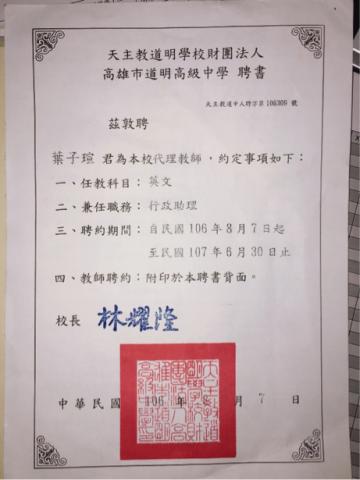 天主教道明學校財團法人
高雄市道明高級中學 聘書
天主教道中人聘字第 106309 號
茲敦聘
葉子瑄 君為本校代理教師,約定事項如下:
一、任教科目:英文
二、兼任職務:行政助理
三、聘約期間:自民國 106 年 8 月 7 日起
至民國 107 年 6 月 30 日止
四、教師聘約:附印於本聘書背面。
校長 林耀隆
中華民國 106 年 月 7 日